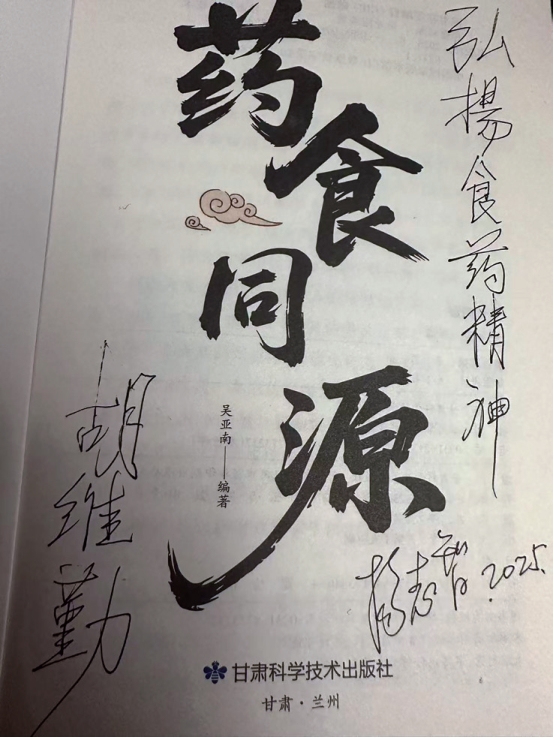 药食同源
吴亚南——编著
弘揚食药精神
杨志智 2025.
胡维勤
甘肃科学技术出版社
甘肃·兰州